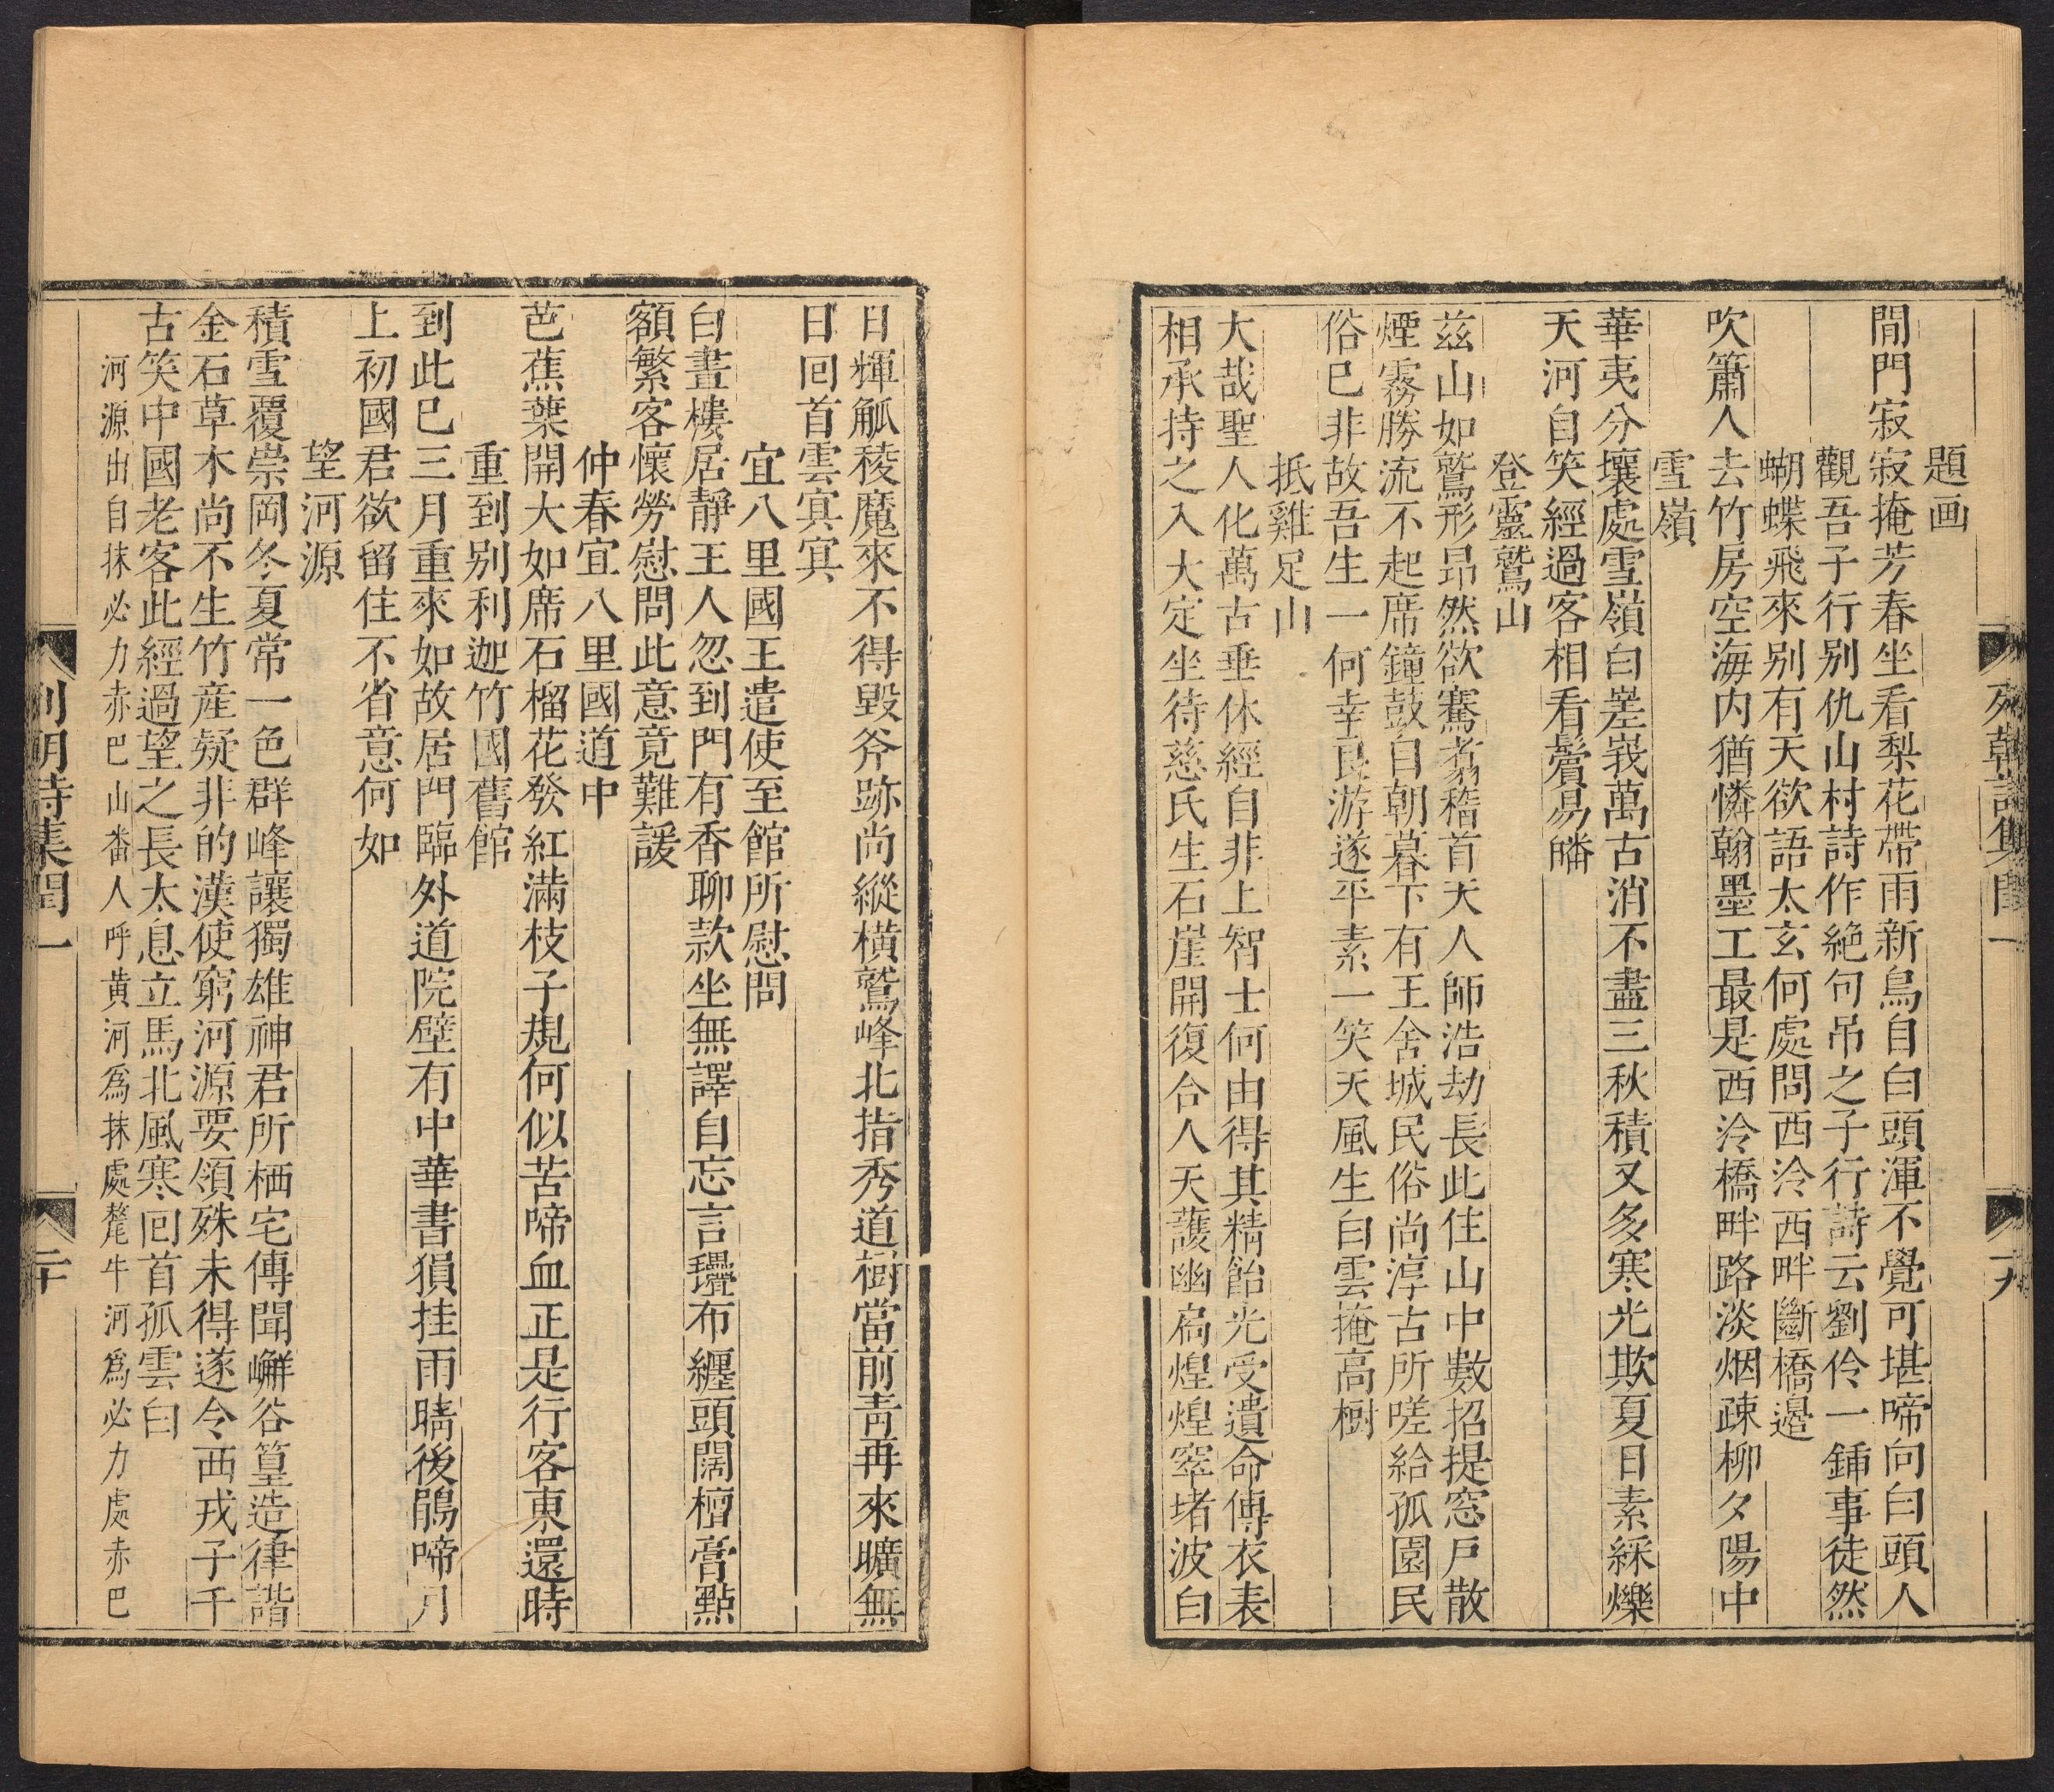 題画
閒門寂寂掩芳春坐看梨花帶雨新鳥自白頭渾不覺可堪啼向白頭人
觀吾子行别仇山村詩作絶句吊之子行詩云劉伶一鍤事徒然
蝴蝶飛來别有天欲語太玄何處問西泠西畔斷橋邉
吹簫人去竹房空海内猶憐翰墨工最是西泠橋畔路淡烟疎柳夕陽中
雪嶺
華夷分壤處雪嶺白嵳峩萬古消不盡三秋積又多寒光欺夏日素綵爍
天河自笑經過客相看鬢易皤
登靈鷲山
茲山如鷲形昂然欲騫翥稽首天人師浩劫長此住山中數招提窓戸散
煙霧勝流不起席鐘鼓自朝暮下有王舍城民俗尚淳古所嗟給孤園民
俗已非故吾生一何幸良游遂平素一笑天風生白雲掩高樹
抵雞足山
大哉聖人化萬古垂休經自非上智士何由得其精飴光受遺命傳衣表
相承持之入大定坐待慈氏生石崖開復合人天護幽扃煌煌窣堵波白
列朝詩集閏一
十九
日輝觚稜魔來不得毀斧跡尚縱橫鷲峰北指秀道樹當前青再來曠無
日回首雲寘寘
宜八里國王遣使至館所慰問
白晝樓居靜王人忽到門有香聊款坐無譯自忘言㲲布纒頭闊檀膏點
額繁客懷勞慰問此意竟難諼
仲春宜八里國道中
芭蕉葉開大如席石榴花發紅滿枝子規何似苦啼血正是行客東還時
重到别利迦竹國舊館
到此已三月重來如故居門臨外道院壁有中華書猨挂雨晴後鵑啼月
上初國君欲留住不省意何如
望河源
積雪覆崇岡冬夏常一色群峰讓獨雄神君所栖宅傳聞嶰谷篁造律諧
金石草木尚不生竹産疑非的漢使窮河源要領殊未得遂令西戎子千
古笑中國老客此經過望之長太息立馬北風寒回首孤雲白
河源出自抹必力赤巴山畨人呼黄河爲抹處犛牛河爲必力處赤巴
列朝詩集閏一
二十